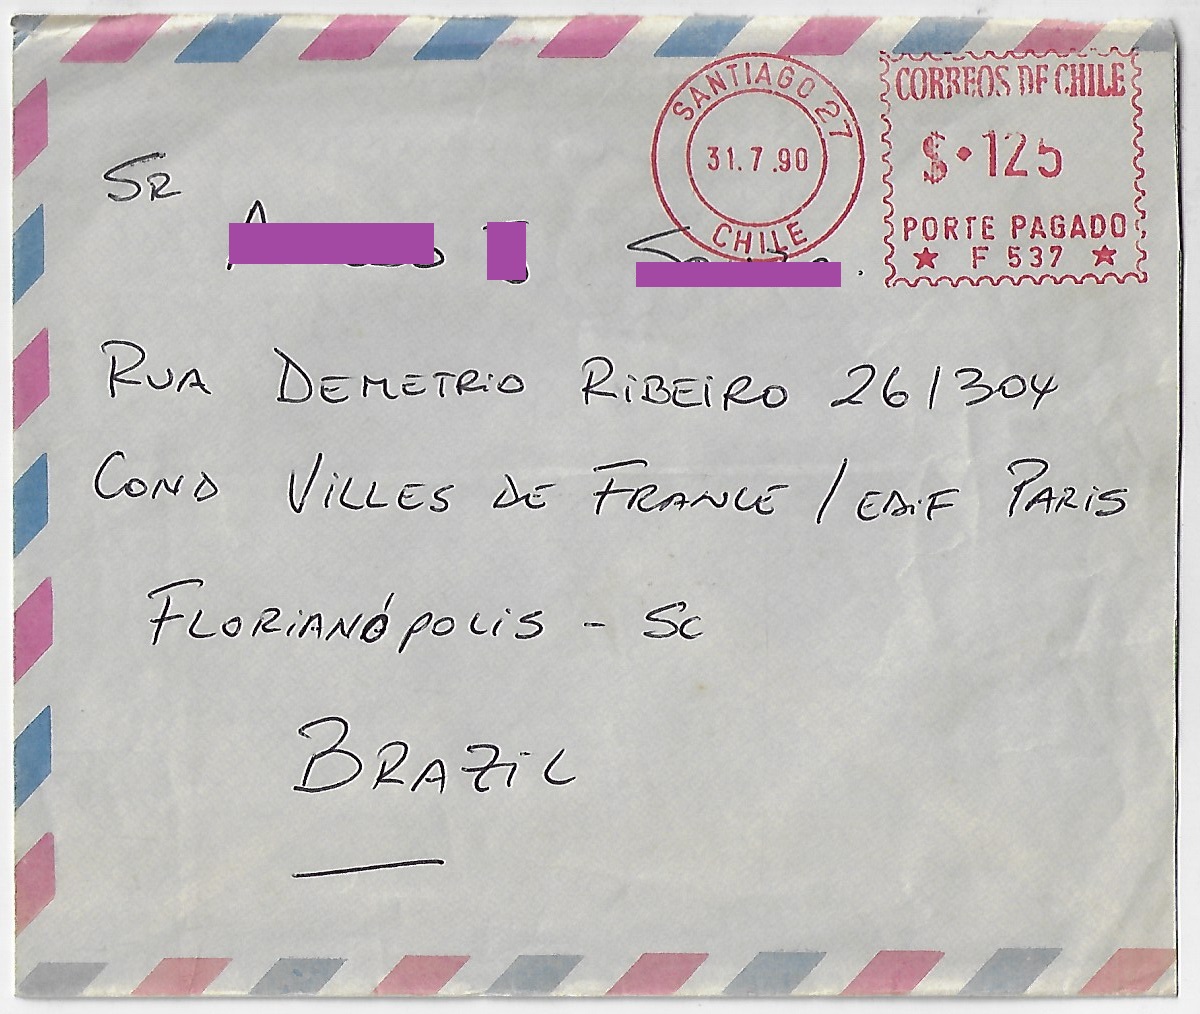 SANTIAGO 27
31.7.90
CHILE
CORREOS DE CHILE
$·125
PORTE PAGADO
★ F 537 ★
SR
RUA DEMETRIO RIBEIRO 26/304
COND VILLES DE FRANCE / EDIF PARIS
FLORIANÓPOLIS - SC
BRAZIL